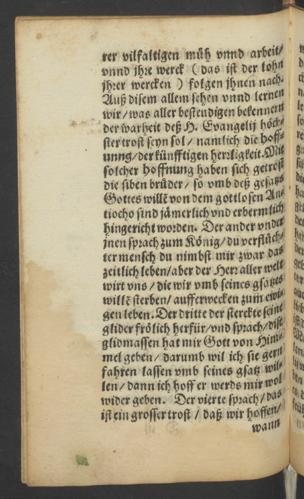 rer vilfaltigen müh vnnd arbeit/
vnnd jhre werck (das ist der lohn
jhrer wercken) folgen jhnen nach.
Auß disem allem sehen vnnd lernen
wir/was aller bestendigen bekennern
der warheit deß H. Evangelij höch-
ster trost seyn sol/namlich die hoff-
nung/der künfftigen herrligkeit. Mit
solcher hoffnung haben sich getröst
die siben brüder/so vmb deß gesatzes
Gottes willē von dem gottlosen An-
tiocho sind jämerlich vnd erbermlich
hingericht worden. Der ander vnder
jnen sprach zum König/du verfluch-
ter mensch du nimbst mir zwar das
zeitlich leben/aber der Herz aller welt
wirt vns/die wir vmb seines gsatzes
willē sterben/aufferwecken zum ewi-
gen leben. Der dritte der streckte seine
glider frölich herfür/vnd sprach/dise
glidmassen hat mir Gott von Him-
mel geben/darumb wil ich sie gern
fahren lassen vmb seines gsatz wil-
len/dann ich hoff er werds mir wol
wider geben. Der vierte sprach/das
ist ein grosser trost/daß wir hoffen/
wann